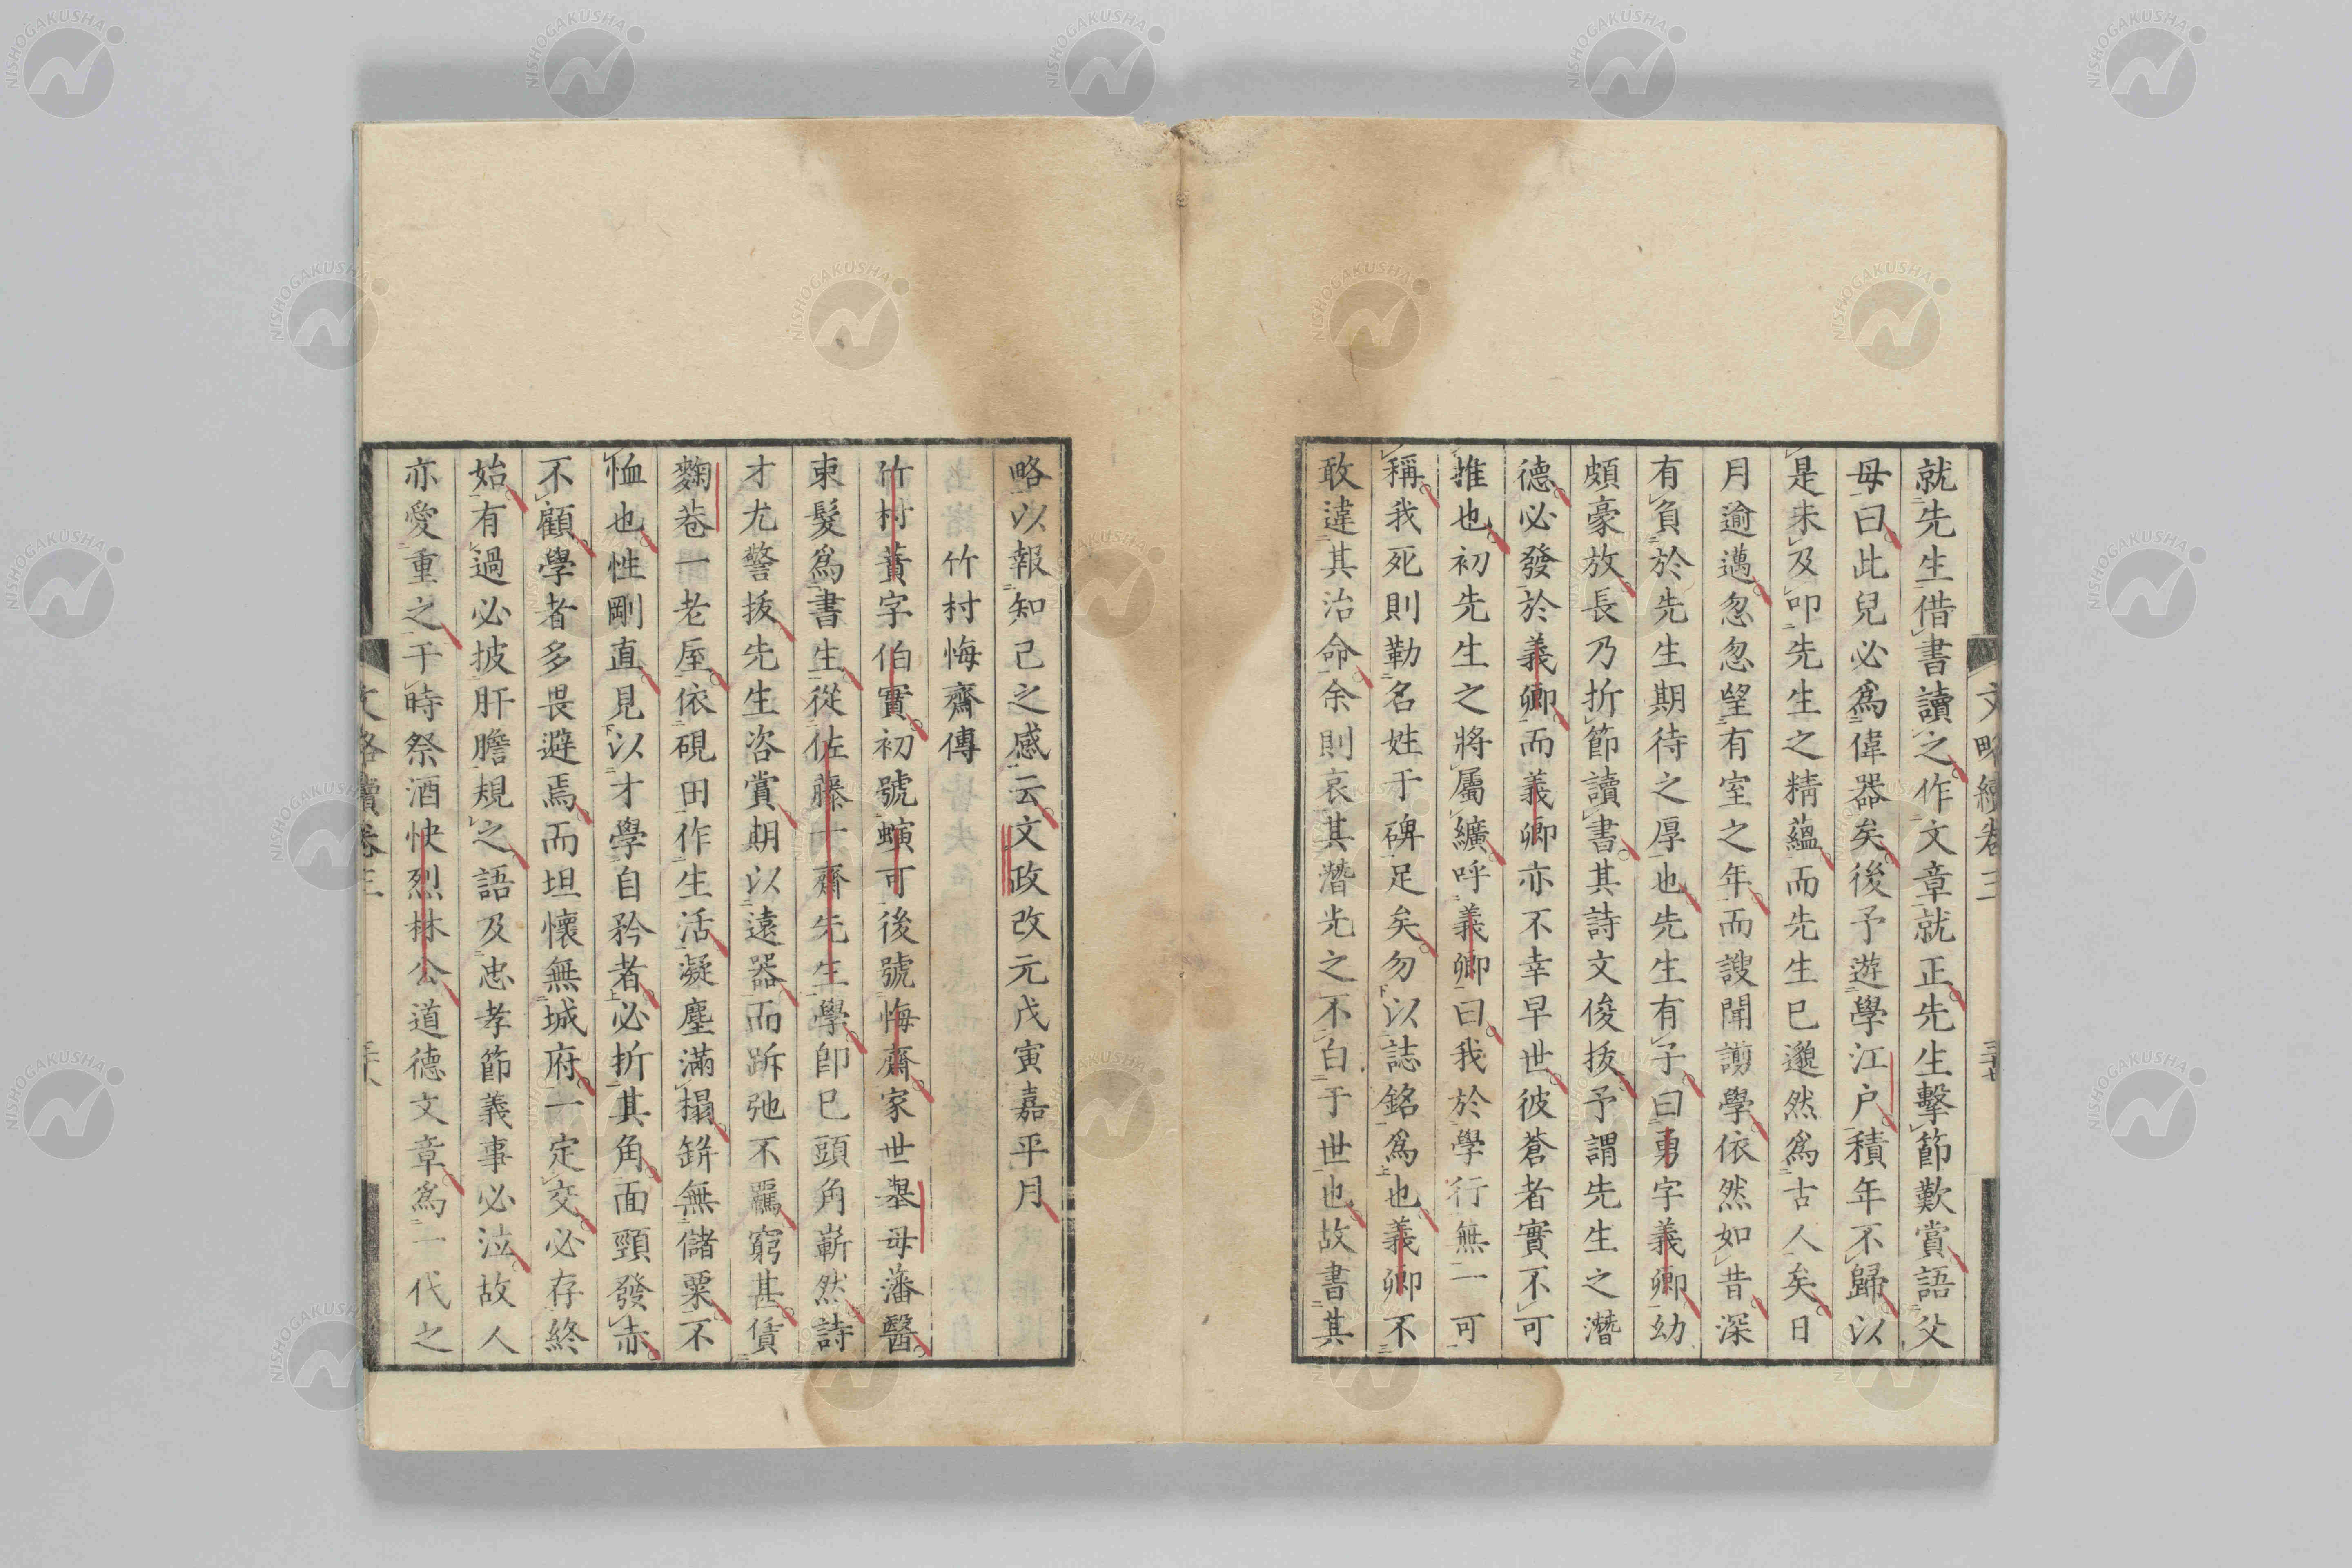 就先生借書讀之作文章就正先生擊節歎賞語父
母曰此兒必爲偉器矣後予遊學江戶積年不歸以
是未及叩先生之精蘊而先生已邈然爲古人矣日
月逾邁忽忽望有室之年而謏聞謭學依然如昔深
有負於先生期待之厚也先生有子曰勇字義卿幼
頗豪放長乃折節讀書其詩文俊拔予謂先生之潛
德必發於義卿而義卿亦不幸早世彼蒼者實不可
推也初先生之將屬纊呼義卿曰我於學行無一可
稱我死則勒名姓于碑足矣勿以誌銘爲也義卿不
敢違其治命余則哀其潛光之不白于世也故書其
略以報知己之感云文政改元戊寅嘉平月
竹村悔齋傳
竹村蕡字伯實初號蠙可後號悔齋家世擧母藩醫
束髮爲書生從佐藤一齋先生學卽已頭角嶄然詩
才尤警拔先生咨賞期以遠器而跅弛不羈窮甚賃
麴巷一老屋依硯田作生活凝塵滿榻缾無儲粟不
恤也性剛直見以才學自矜者必折其角面頸發赤
不顧學者多畏避焉而坦懷無城府一定交必存終
始有過必披肝膽規之語及忠孝節義事必泣故人
亦愛重之于時祭酒快烈林公道德文章爲一代之
文略續卷三
NISHOGAKUSHA